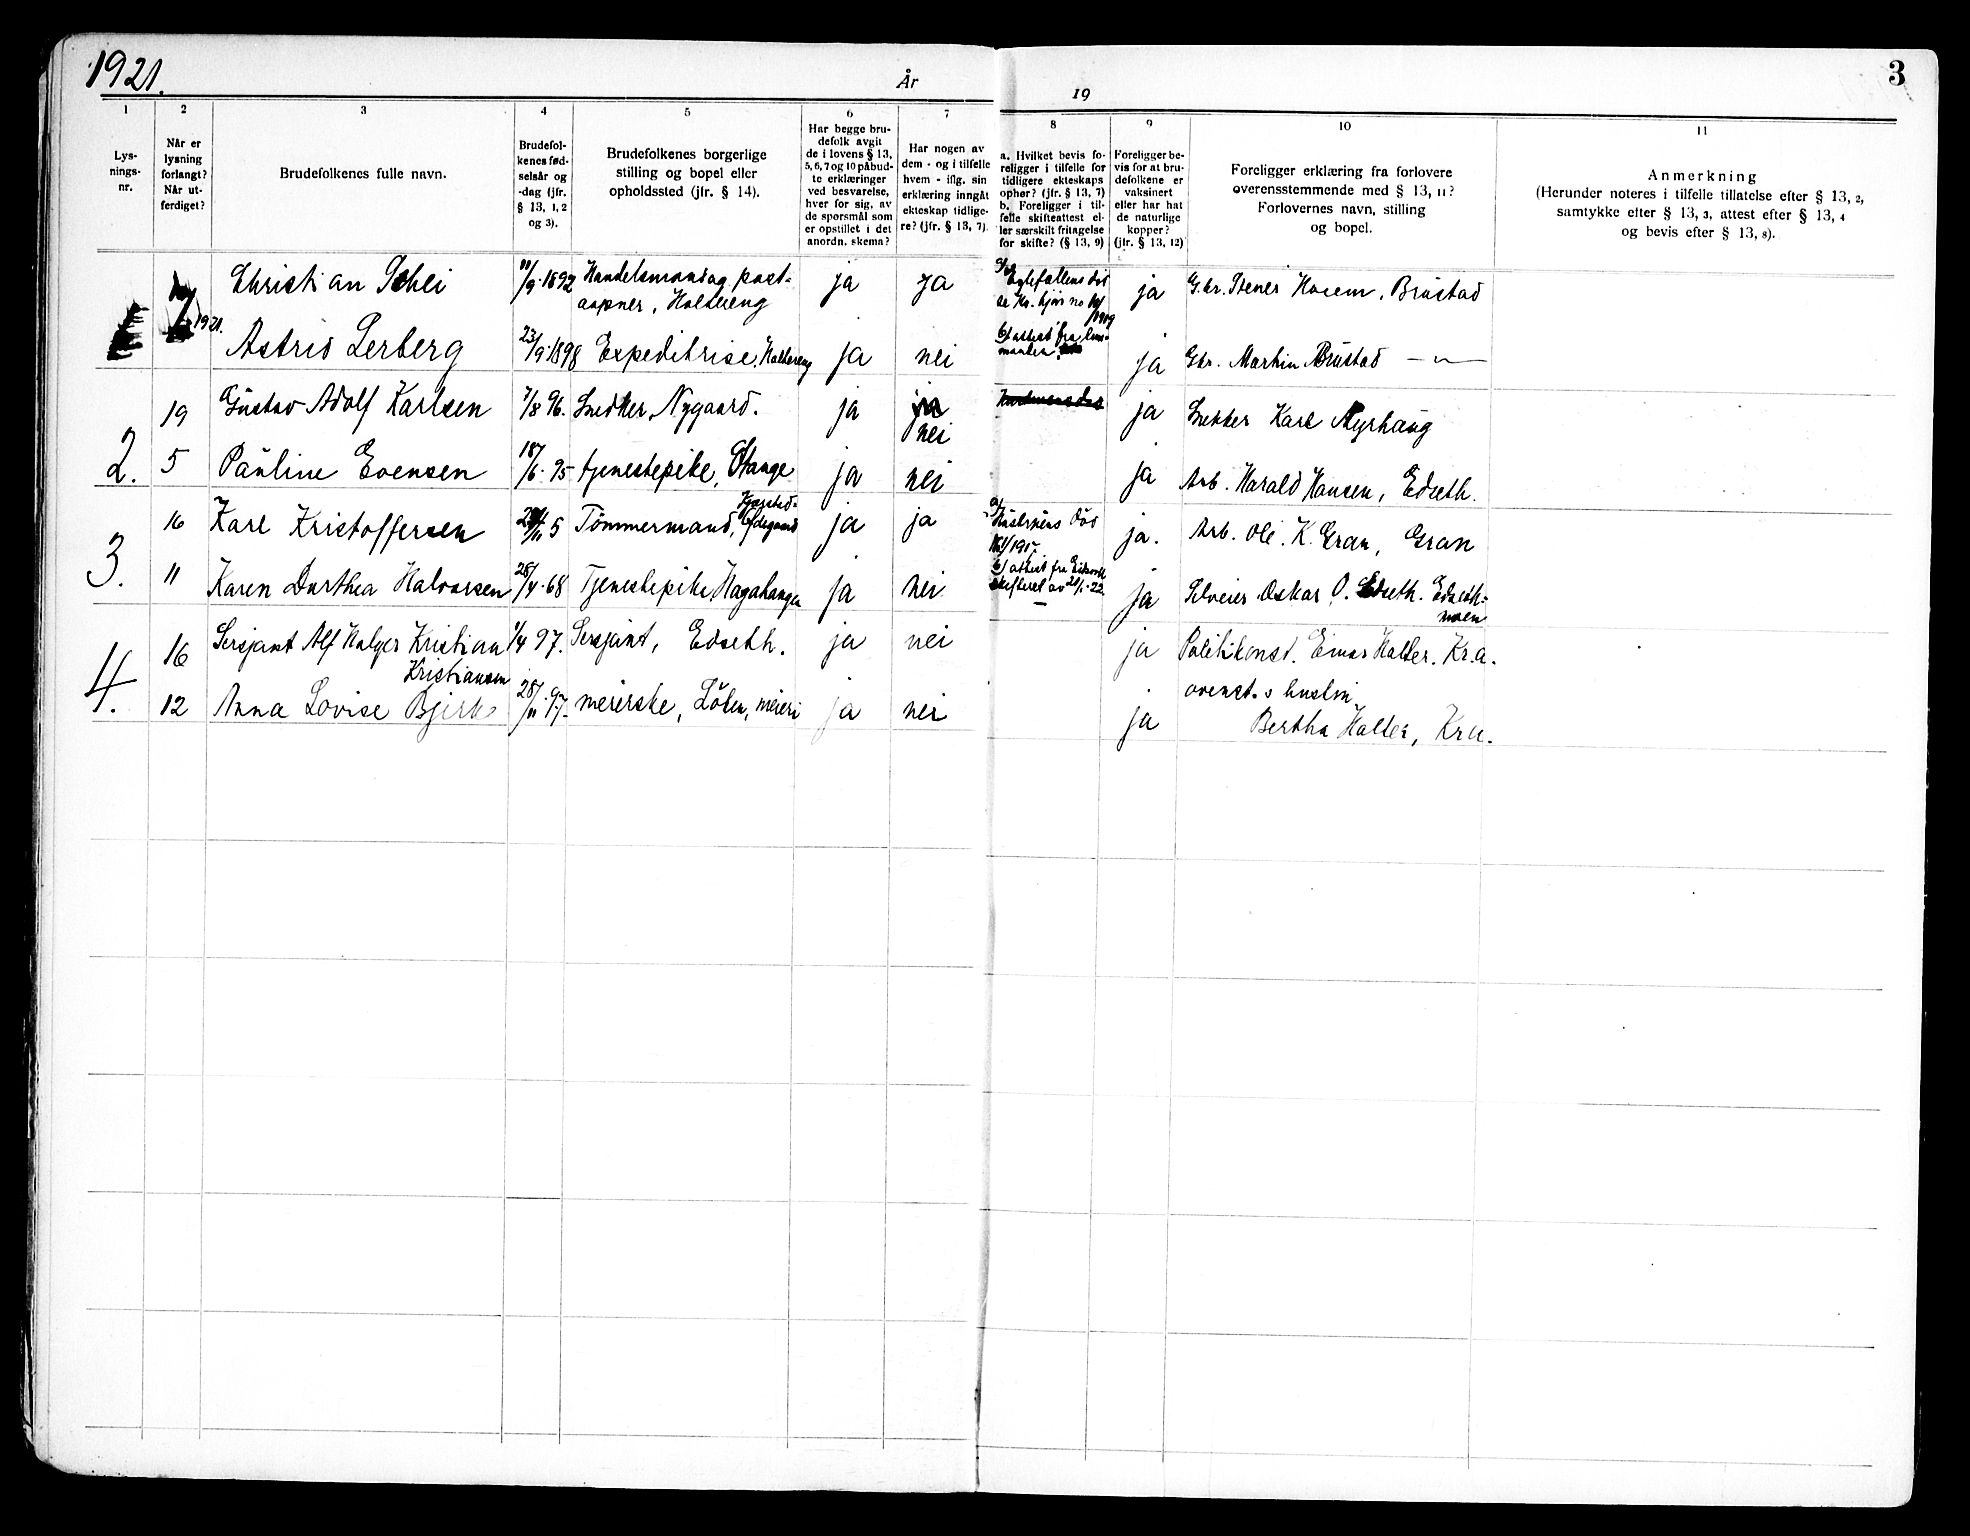 1921.
År
19
3
1
2
3
4
5
6
7
8
9
10
11
Lys-
nings-
nr.
Når er
lysning
forlangt?
Når ut-
ferdiget?
Brudefolkenes fulle navn.
Brudefol-
kenes fød-
selsår og
-dag (jfr.
§ 13, 1, 2
og 3).
Brudefolkenes borgerlige
stilling og bopel eller
opholdssted (jfr. § 14).
Har begge bru-
defolk avgit
de i lovens § 13,
5, 6, 7 og 10 påbud-
te erklæringer
ved besvarelse,
hver for sig, av
de spørsmål som
er opstillet i det
anordn. skema?
Har nogen av
dem - og i tilfelle
hvem - iflg. sin
erklæring inngåt
ekteskap tidlige-
re? (jfr. § 13, 7).
a. Hvilket bevis fo-
religger i tilfelle for
tidligere ekteskaps
ophør? (jfr. § 13, 7)
b. Foreligger i til-
felle skifteattest el-
ler særskilt fritagelse
for skifte? (§ 13, 9)
Foreligger be-
vis for at bru-
defolkene er
vaksinert
eller har hat
de naturlige
kopper?
(jfr. § 13, 12)
Foreligger erklæring fra forlovere
overensstemmende med § 13, 11?
Forlovernes navn, stilling
og bopel.
Anmerkning
(Herunder noteres i tilfelle tillatelse efter § 13, 2,
samtykke efter § 13, 3, attest efter § 13, 4
og bevis efter § 13, 8).
1921.
Christian Schei
11/9.1892
Handelsmand og post-
aapner, Holtereng
ja
ja
Egtefællens død
ja
Gbr. Stener Hosem, Brustad
Astrid Lerberg
23/9.1898
Expeditrise, Holtereng
ja
nei
b) attest fra lens-
manden
ja
Gbr. Martin Brustad — " —
2.
19
Gustav Adolf Karlsen
7/8 96.
Snedker, Nygaard.
ja
nei
ja
Snekker Karl Myrhaug
5
Pauline Evensen
18/6. 95
tjenestepike, Stange
ja
nei
ja
Arb. Harald Hansen, Edseth.
3.
16
Karl Kristoffersen
Tømmermand,
ja
ja
a) Hustruens død
1917.
ja.
Arb. Ole. K. Gran, Gran
11
Karen Dorthea Halvorsen
28/4.68
Tjenestepike, Hagahaugen
ja
nei
b) attest fra Eidsvoll
skifteret av 21/1.22
ja
Selveier Oskar O. Edseth. Edseth-
moen
4.
16
Sersjant Alf Holger Kristian
Kristiansen
1/4 97.
Sersjant, Edseth.
ja
nei
ja
Politikonst. Einar Halter. Kr.a.
12
Anna Lovise Bjerk
28/11.97.
meierske, Löten, meieri
ja
nei
ja
ovenst.s hustru
Bertha Halter, Kra.